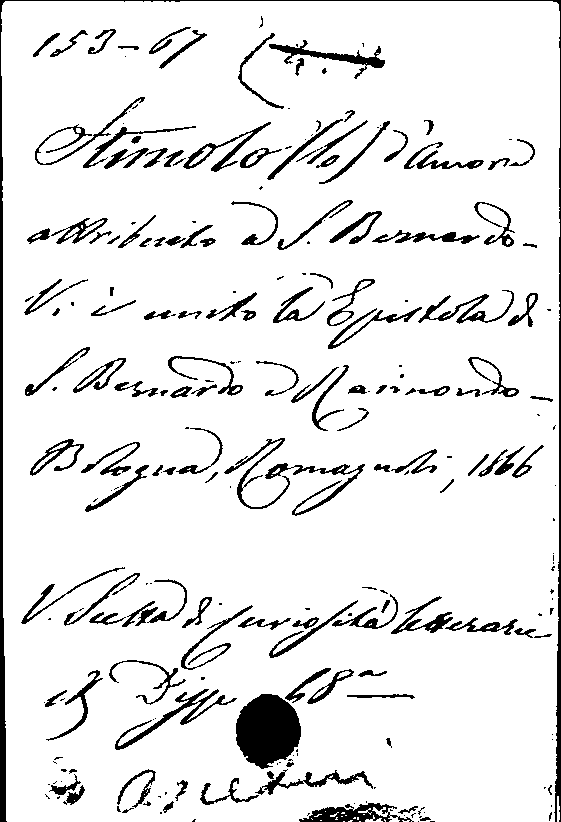 153-67
Stimolo (lo) d'Amore
attribuito a S. Bernardo-
Vi è unito la Epistola di
S. Bernardo a Raimondo-
Bologna, Romagnoli, 1866
V. Scelta di curiosità letterarie
Disp 68ª